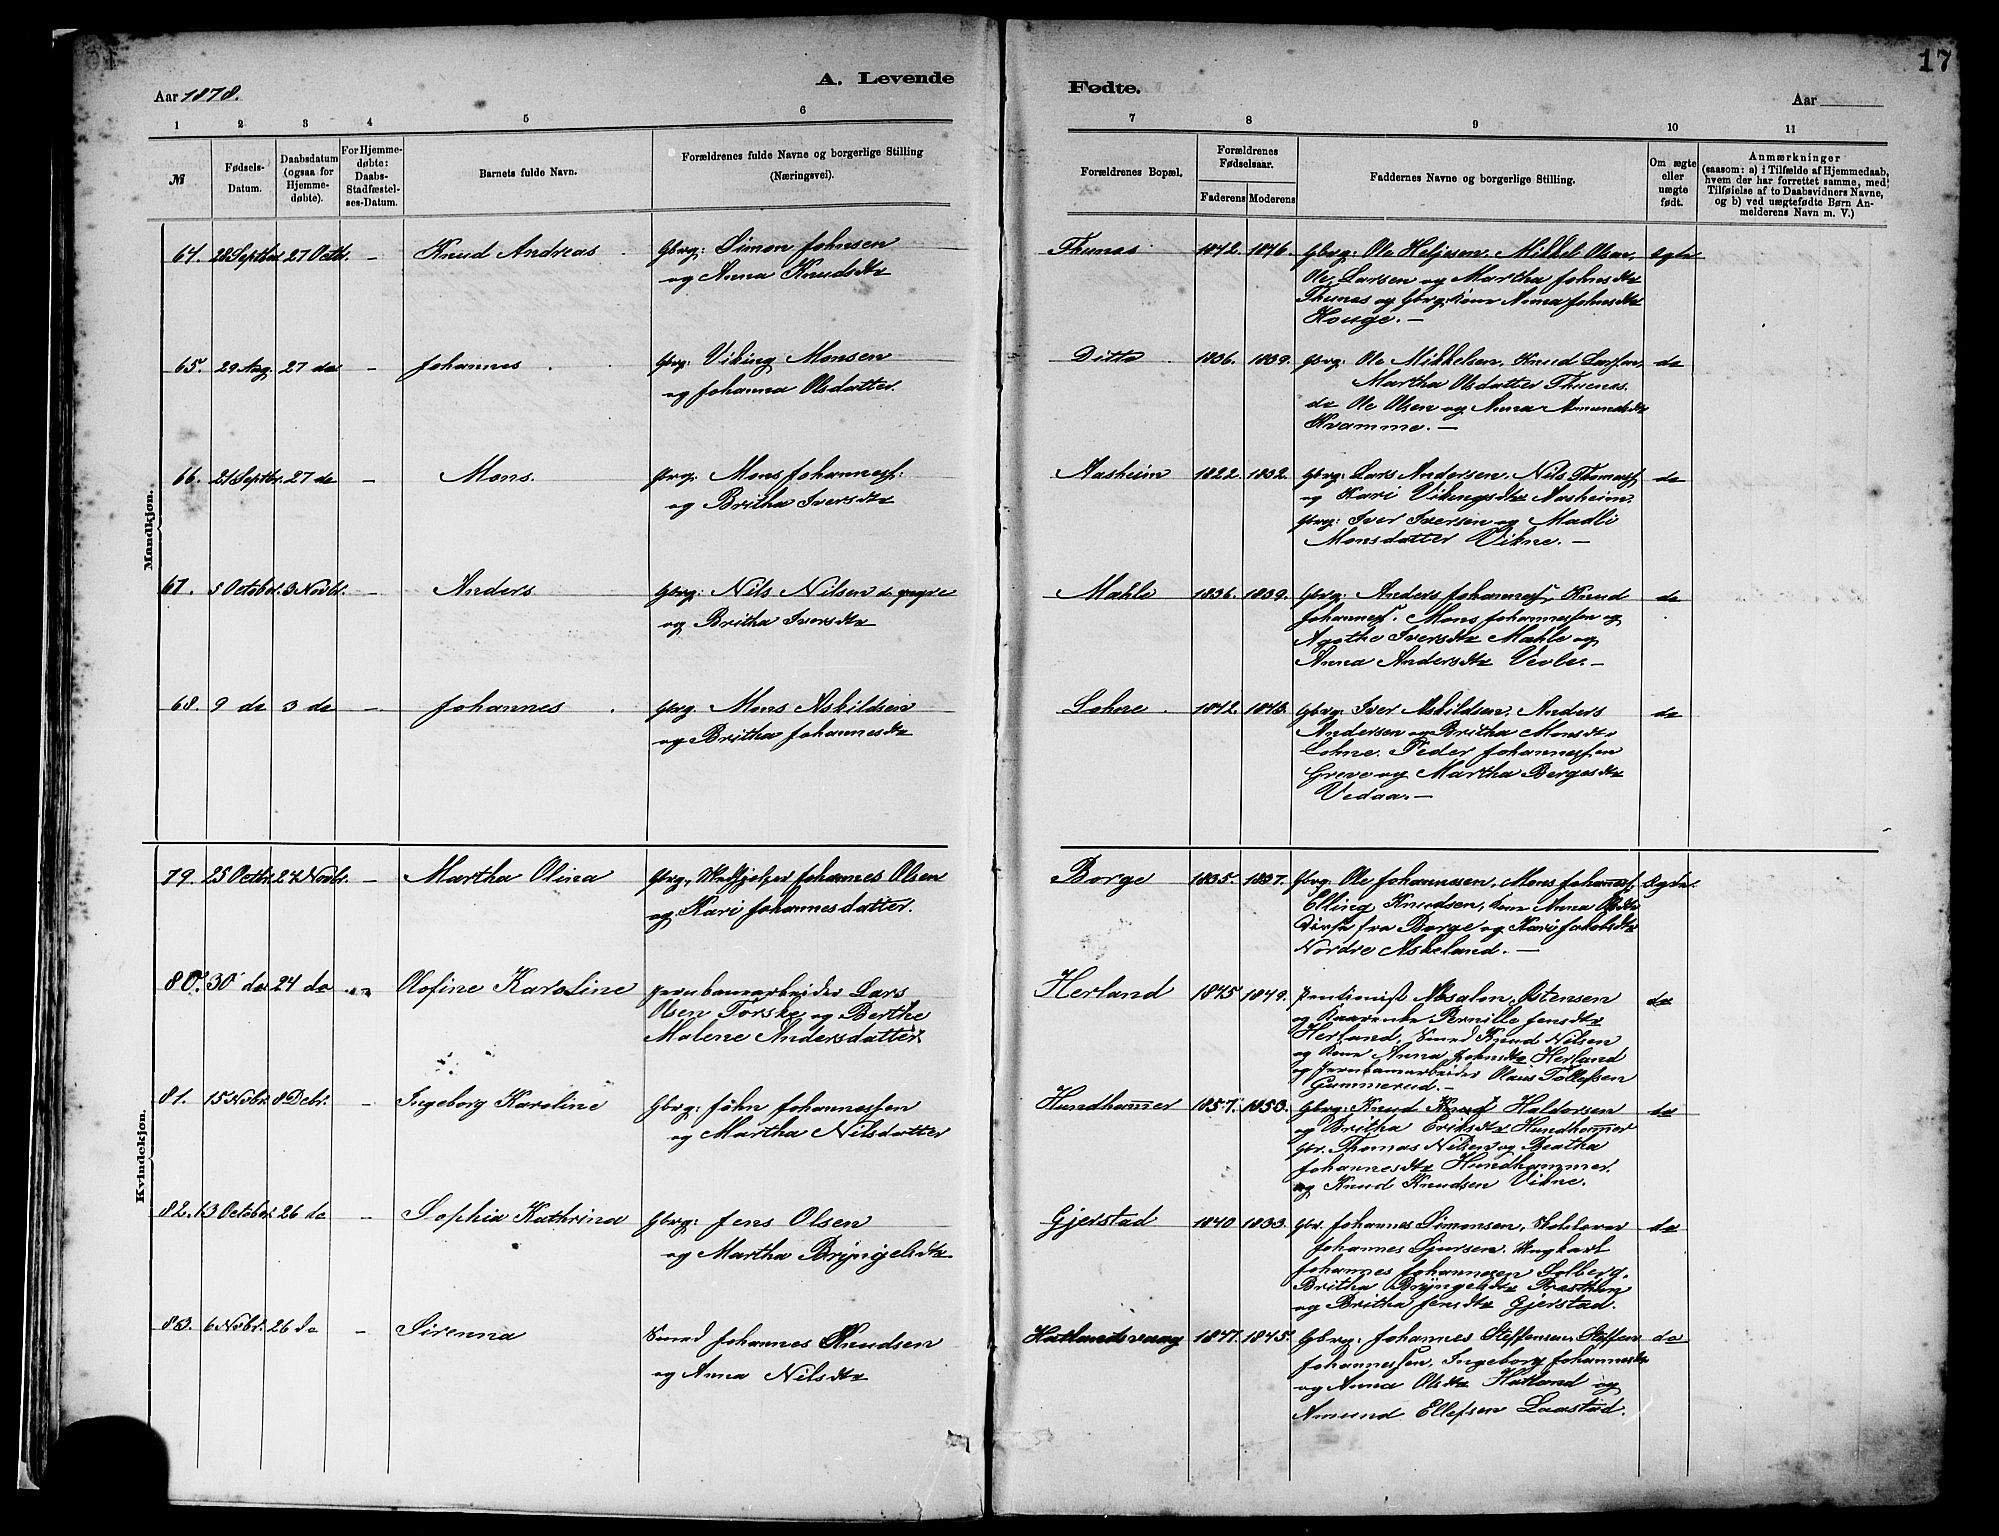 17
A. Levende Fødte.
Aar 1878. Aar
1 2 3 4 5 6 7 8 9 10 11
№ Fødsels-Datum. Daabsdatum (ogsaa for Hjemme-døbte). For Hjemme-døbte: Daabs-Stadfæstel-ses-Datum. Barnets fulde Navn. Forældrenes fulde Navne og borgerlige Stilling (Næringsvei). Forældrenes Bopæl. Forældrenes Fødselsaar. Faderens Moderens Faddernes Navne og borgerlige Stilling. Om ægte eller uægte født. Anmærkninger (saasom: a) i Tilfælde af Hjemmedaab, hvem der har forrettet samme, med Tilføielse af to Daabsvidners Navne, og b) ved uægtefødte Børn An-melderens Navn m. V.)
Mandkjøn.
64. 28 Septbr. 27 Octbr. - Knud Andreas Gbrg: Simon Johnsen Thunas 1842. 1846. Gbrg: Ole Heljesen, Mikkel Olsen, Ægte
og Anna Knudsdtr Ole Larsen og Martha Johnsdtr
Thunas og Gbrg: kone Anna Johnsdtr
Houge. —
65. 29 Aug. 27 de - Johannes Gbrg: Viking Monsen Ditto 1836. 1839. Gbrg: Ole Mikkelsen, Knud Larssen, de
og Johanna Olsdatter. Martha Olsdatter Thunas.
de Ole Olsen og Anna Amundsdtr
Kvamme. —
66. 21 Septbr. 27 de - Mons. Gbrg. Mons Johannesf: Aasheim 1822. 1832. Gbrg: Lars Andersen, Nils Thomasf de
og Britha Iversdtr og Kari Vikingsdtr Aasheim.
Gbrg: Iver Iversen og Madli
Monsdatter Vikne. —
67. 5 October. 3 Novbr. - Anders Gbrg: Nils Nilsen d. yngre Mæhle 1836. 1839. Gbrg: Anders Johannesf, Knud de
og Britha Iversdtr Johannesf. Mons Johannesfen og
Agathe Iversdtr Mæhle og
Anna Andersdtr Veole. —
68. 9 de 3 de - Johannes Gbrg. Mons Askildsen Lohne 1842. 1848. Gbrg: Iver Askildsen, Anders de
og Britha Johannesdtr Andersen og Britha Monsdtr
Lohne. Peder Johannesfen
Greve og Martha Bergesdtr
Vedaa. —
Kvindekjøn.
79. 25 Octbr. 24 Novbr. - Martha Olina Gbrg, Medhjelper Johannes Olsen Borge 1835. 1837. Gbrg: Ole Johannesen, Mons Johannesf, Ægte.
og Kari Johannesdatter. Elling Knudsen, kone Anna Olsdtr
fra Borge og Kari Jakobsdtr
Nordre Askeland. —
80. 30 de 24 de Olofine Karoline Jernbanearbeider Lars Herland 1845 1849. Pentionist Absalon Ostensen de
Olsen Torske og Berthe og Pernille Jensdtr
Malene Andersdatter Herland, Smed Knud Nilsen
og kone Anna Johnsdtr Herland
og Jernbanearbeider Olaus Tollefsen
Gummerud. —
81. 15 Novbr. 8 Debr. - Ingeborg Karoline Gbrg: John Johannesfen Hundhammer 1857. 1853. Gbrg: Knud Haldorsen de
og Martha Nilsdatter og Britha Eriksdtr Hundhammer
Gbr. Thomas Nilsen og Beatha
Johannesdtr Hundhammer.
og Knud Knudsen Vikne.
82. 13 October. 26 de - Sophia Kathrina Gbrg: Jens Olsen Gjerstad 1840 1833. Gbr. Johannes Simonsen, Skolelærer de
og Martha Bryngelsdtr Johannes Sjursen. Ungkarl
Johannes Johannesen Solberg,
Britha Bryngelsdtr
og Britha Jensdtr Gjerstad.
83. 6 Novbr. 26 de - Sirenna Smed Johannes Knudsen Hatlandsvaag 1847. 1845. Gbrg: Johannes Steffensen, Steffen de
og Anna Nilsdtr Johannesfen, Ingeborg Johannesdtr
og Anna Olsdtr Hatland og
Amund Ellefsen Laastad.